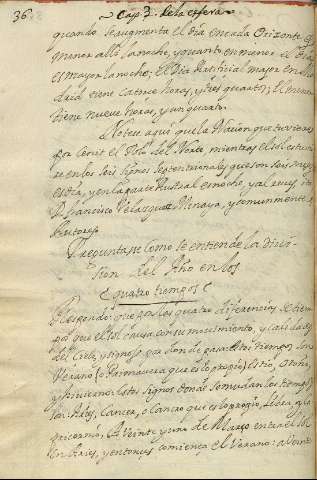 36
Cap. 3. de la esfera
quando se augmenta el Dia en cada Orizonte el
menor alli la noche, y quanto en menor el Dia
es mayor la noche; el Dia Artificial mayor en Ma
drid tiene Catorce horas, y tres quartos; el menor
tiene nueve horas, y un quarto.
Notese aqui que la Nacion que tuviere
por Cenit el Polo del Norte mientras el sol estuvie
re en los seis signos septentrionales que son seis meses
es dia, y en la parte Austral es noche, y al reves
D. Francisco Velazquez Minaya, y comunmente
Autores.
Preguntase como se entiende la divi-
sion del Año en los
quatro tiempos
Respondo: que por los quatro diferencias de tiem
pos que el sol causa con su movimiento, y calidades
del Cielo, y signos por donde pasa tres tiempos son
Verano (o Primavera que es lo propio) Estio, Otoño,
y Hivierno: los signos donde se mudan los tiempos
son: Aries, Cancer, o Cancro que es lo propio, Libra y Ca
pricornio, A Veinte y uno de Março entra el sol
en Aries, y entonces comiença el Verano: a Veinte